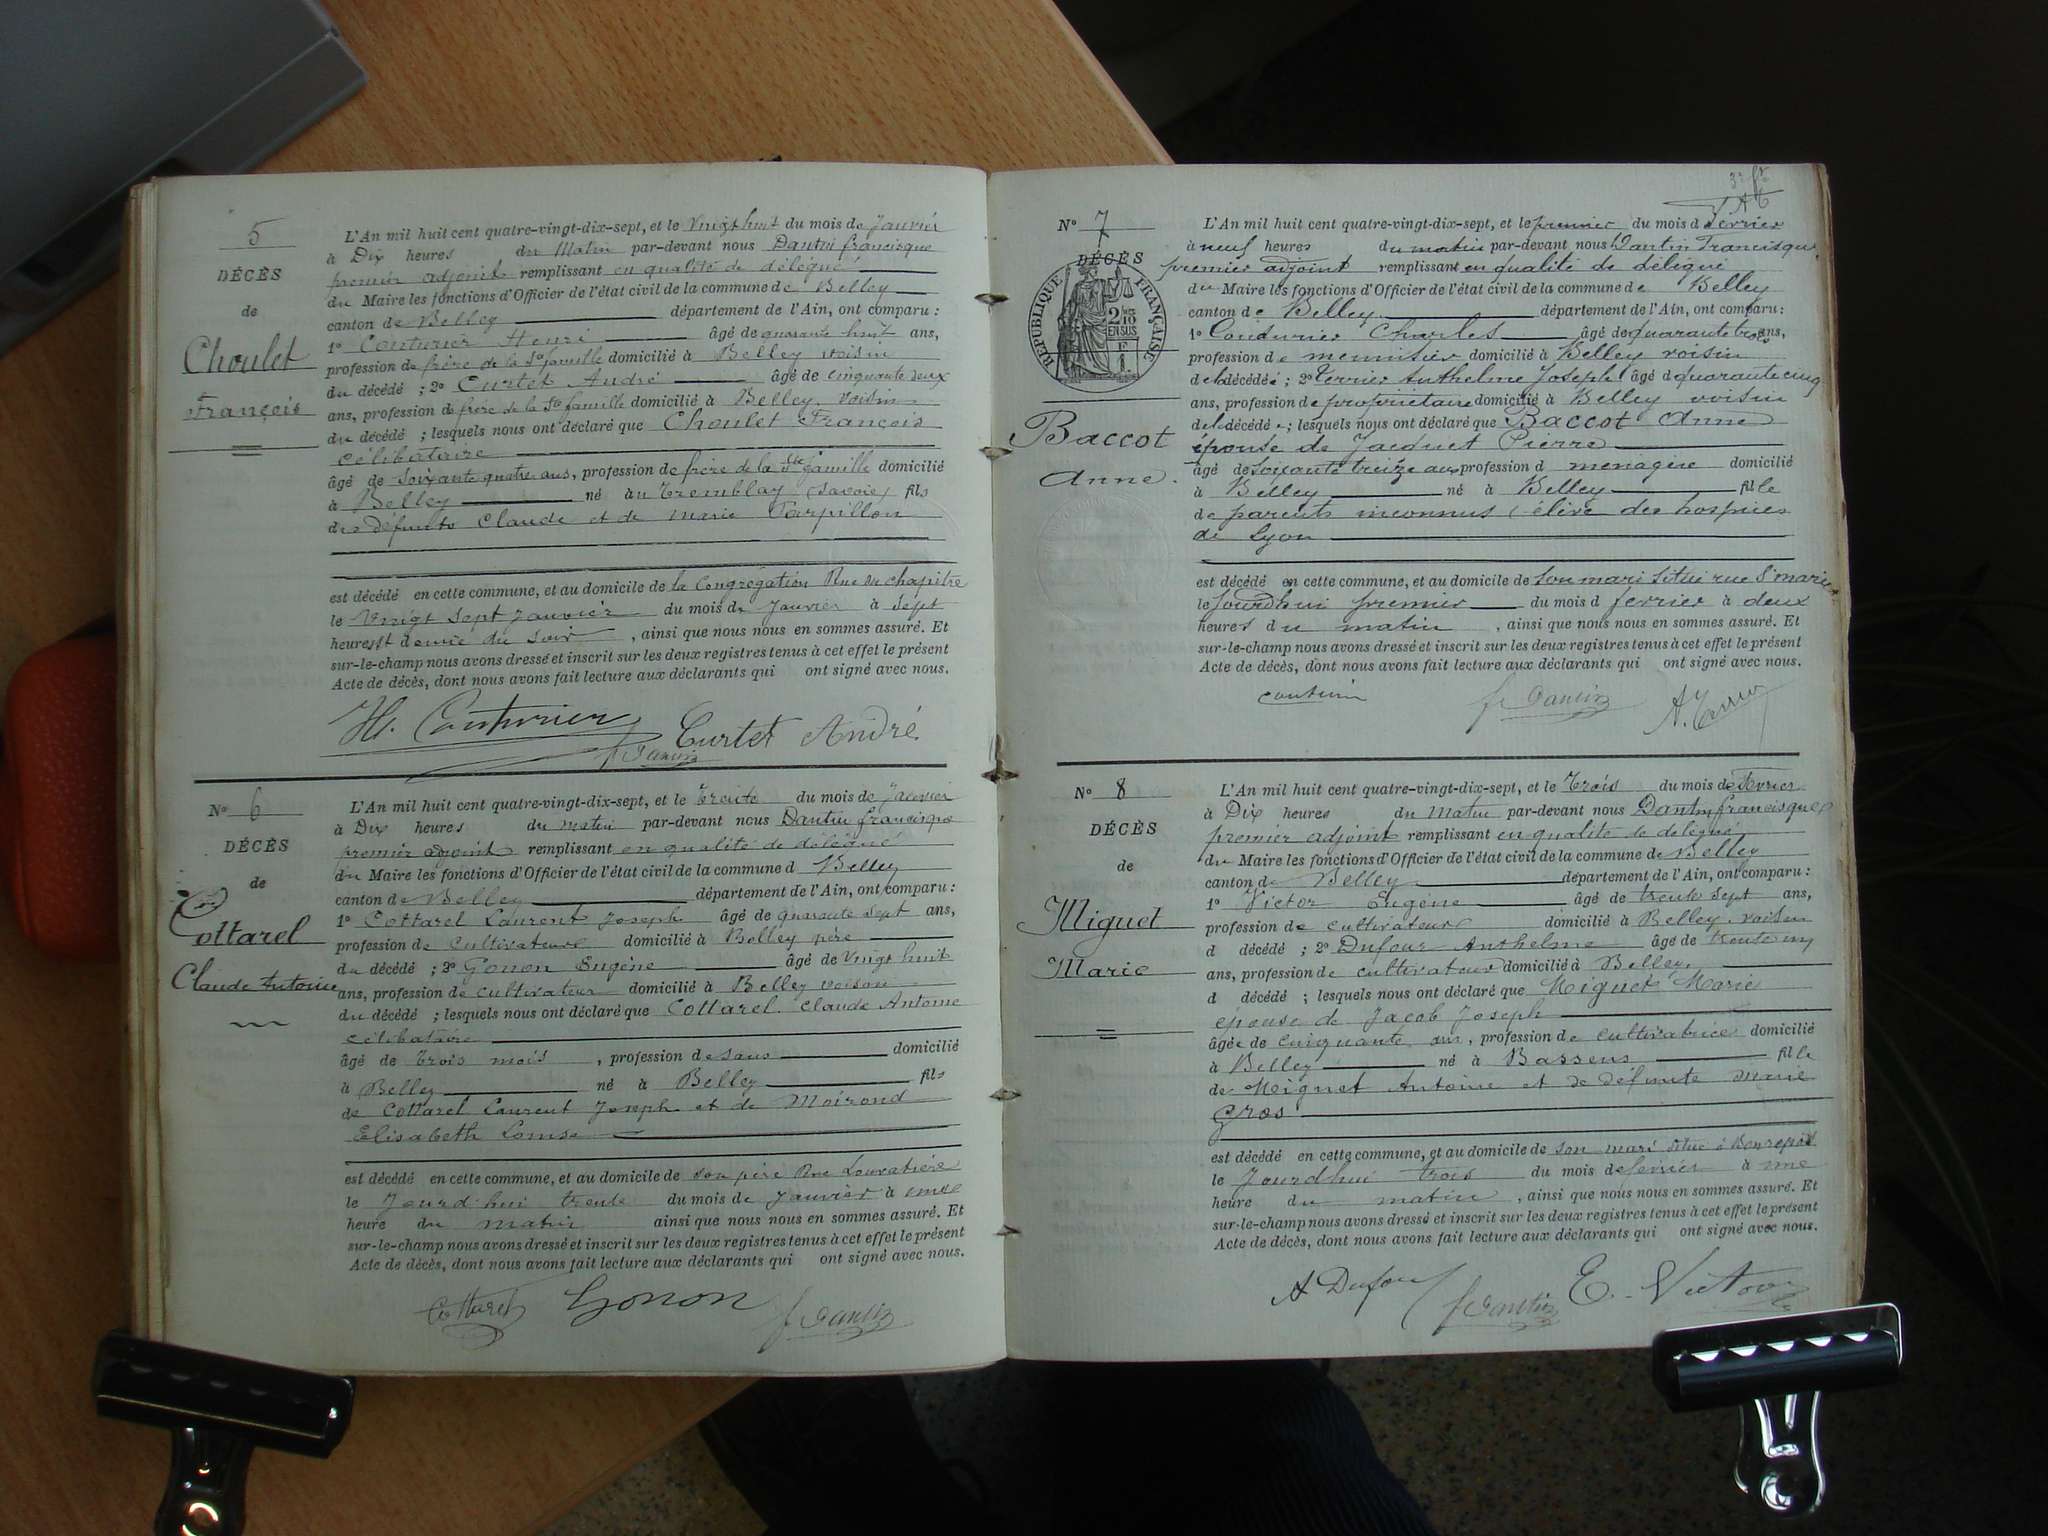 5
DÉCÈS
de
Choulet
François
L'An mil huit cent quatre-vingt-dix-sept, et le Vingt huit du mois de Janvier
à Dix heures du Matin par-devant nous Dantin francisque
premier adjoint remplissant en qualité de délégué
du Maire les fonctions d'Officier de l'état civil de la commune de Belley
canton de Belley département de l'Ain, ont comparu :
1º Couturier Henri âgé de quarante huit ans,
profession de frère de la Ste famille domicilié à Belley voisin
du décédé ; 2º Curtet André âgé de cinquante deux
ans, profession de frère de la Ste famille domicilié à Belley voisin
du décédé ; lesquels nous ont déclaré que Choulet François
célibataire
âgé de soixante quatre ans, profession de frère de la Ste famille domicilié
à Belley né au Tremblay (Savoie) fils
des défunts Claude et de Marie Parpillon
est décédé en cette commune, et au domicile de la Congrégation Rue du chapitre
le Vingt sept janvier du mois de Janvier à sept
heures et demie du soir, ainsi que nous nous en sommes assuré. Et
sur-le-champ nous avons dressé et inscrit sur les deux registres tenus à cet effet le présent
Acte de décès, dont nous avons fait lecture aux déclarants qui ont signé avec nous.
H. Couturier Curtet André
f Dantin
Nº 6
DÉCÈS
de
Cottarel
Claude Antoine
L'An mil huit cent quatre-vingt-dix-sept, et le Trente du mois de Janvier
à Dix heures du matin par-devant nous Dantin francisque
premier adjoint remplissant en qualité de délégué
du Maire les fonctions d'Officier de l'état civil de la commune d Belley
canton de Belley département de l'Ain, ont comparu :
1º Cottarel Laurent Joseph âgé de quarante sept ans,
profession de cultivateur domicilié à Belley père
du décédé ; 2º Gonon Eugène âgé de vingt huit
ans, profession de cultivateur domicilié à Belley voison
du décédé ; lesquels nous ont déclaré que Cottarel Claude Antoine
célibataire
âgé de trois mois, profession de sans domicilié
à Belley né à Belley fils
de Cottarel Laurent Joseph et de Moirond
Elisabeth Louise
est décédé en cette commune, et au domicile de son père Rue Louvatière
le Jourd'hui trente du mois de Janvier à une
heure du matin ainsi que nous nous en sommes assuré. Et
sur-le-champ nous avons dressé et inscrit sur les deux registres tenus à cet effet le présent
Acte de décès, dont nous avons fait lecture aux déclarants qui ont signé avec nous.
Cottarel Gonon f Dantin
Nº 7
DÉCÈS
REPUBLIQUE FRANÇAISE
Baccot
Anne.
L'An mil huit cent quatre-vingt-dix-sept, et le premier du mois d fevrier
à neuf heures du matin par-devant nous Dantin Francisque
premier adjoint remplissant en qualité de délégué
du Maire les fonctions d'Officier de l'état civil de la commune de Belley
canton de Belley département de l'Ain, ont comparu :
1º Couturier Charles âgé de quarante trois ans,
profession de menuisier domicilié à Belley voisin
de la décédée ; 2º Terrier Anthelme Joseph âgé d quarante cinq
ans, profession de propriétaire domicilié à Belley voisin
de la décédée ; lesquels nous ont déclaré que Baccot Anne
épouse de Jacquet Pierre
âgé de soixante treize ans profession d ménagère domicilié
à Belley né à Belley fille
de parents inconnus (élève des hospices
de Lyon
est décédé en cette commune, et au domicile de son mari situé rue St marie
le Jourdhui premier du mois d fevrier à deux
heures du matin, ainsi que nous nous en sommes assuré. Et
sur-le-champ nous avons dressé et inscrit sur les deux registres tenus à cet effet le présent
Acte de décès, dont nous avons fait lecture aux déclarants qui ont signé avec nous.
f Dantin
Nº 8
DÉCÈS
de
Miguet
Marie
L'An mil huit cent quatre-vingt-dix-sept, et le Trois du mois de Fevrier
à Dix heures du Matin par-devant nous Dantin francisque
premier adjoint remplissant en qualité de délégué
du Maire les fonctions d'Officier de l'état civil de la commune de Belley
canton de Belley département de l'Ain, ont comparu :
1º Victor Eugène âgé de trente sept ans,
profession de cultivateur domicilié à Belley voisin
d décédé ; 2º Dufour Anthelme âgé de trente un
ans, profession de cultivateur domicilié à Belley
d décédé ; lesquels nous ont déclaré que Miguet Marie
épouse de Jacob Joseph
âgée de cinquante ans, profession de cultivatrice domicilié
à Belley né à Bassens fille
de Meignet Antoine et de défunte Marie
Gros
est décédé en cette commune, et au domicile de son mari situé à Bonrepos
le Jourdhui trois du mois de fevrier à une
heure du matin, ainsi que nous nous en sommes assuré. Et
sur-le-champ nous avons dressé et inscrit sur les deux registres tenus à cet effet le présent
Acte de décès, dont nous avons fait lecture aux déclarants qui ont signé avec nous.
A Dufour f Dantin E. Victor